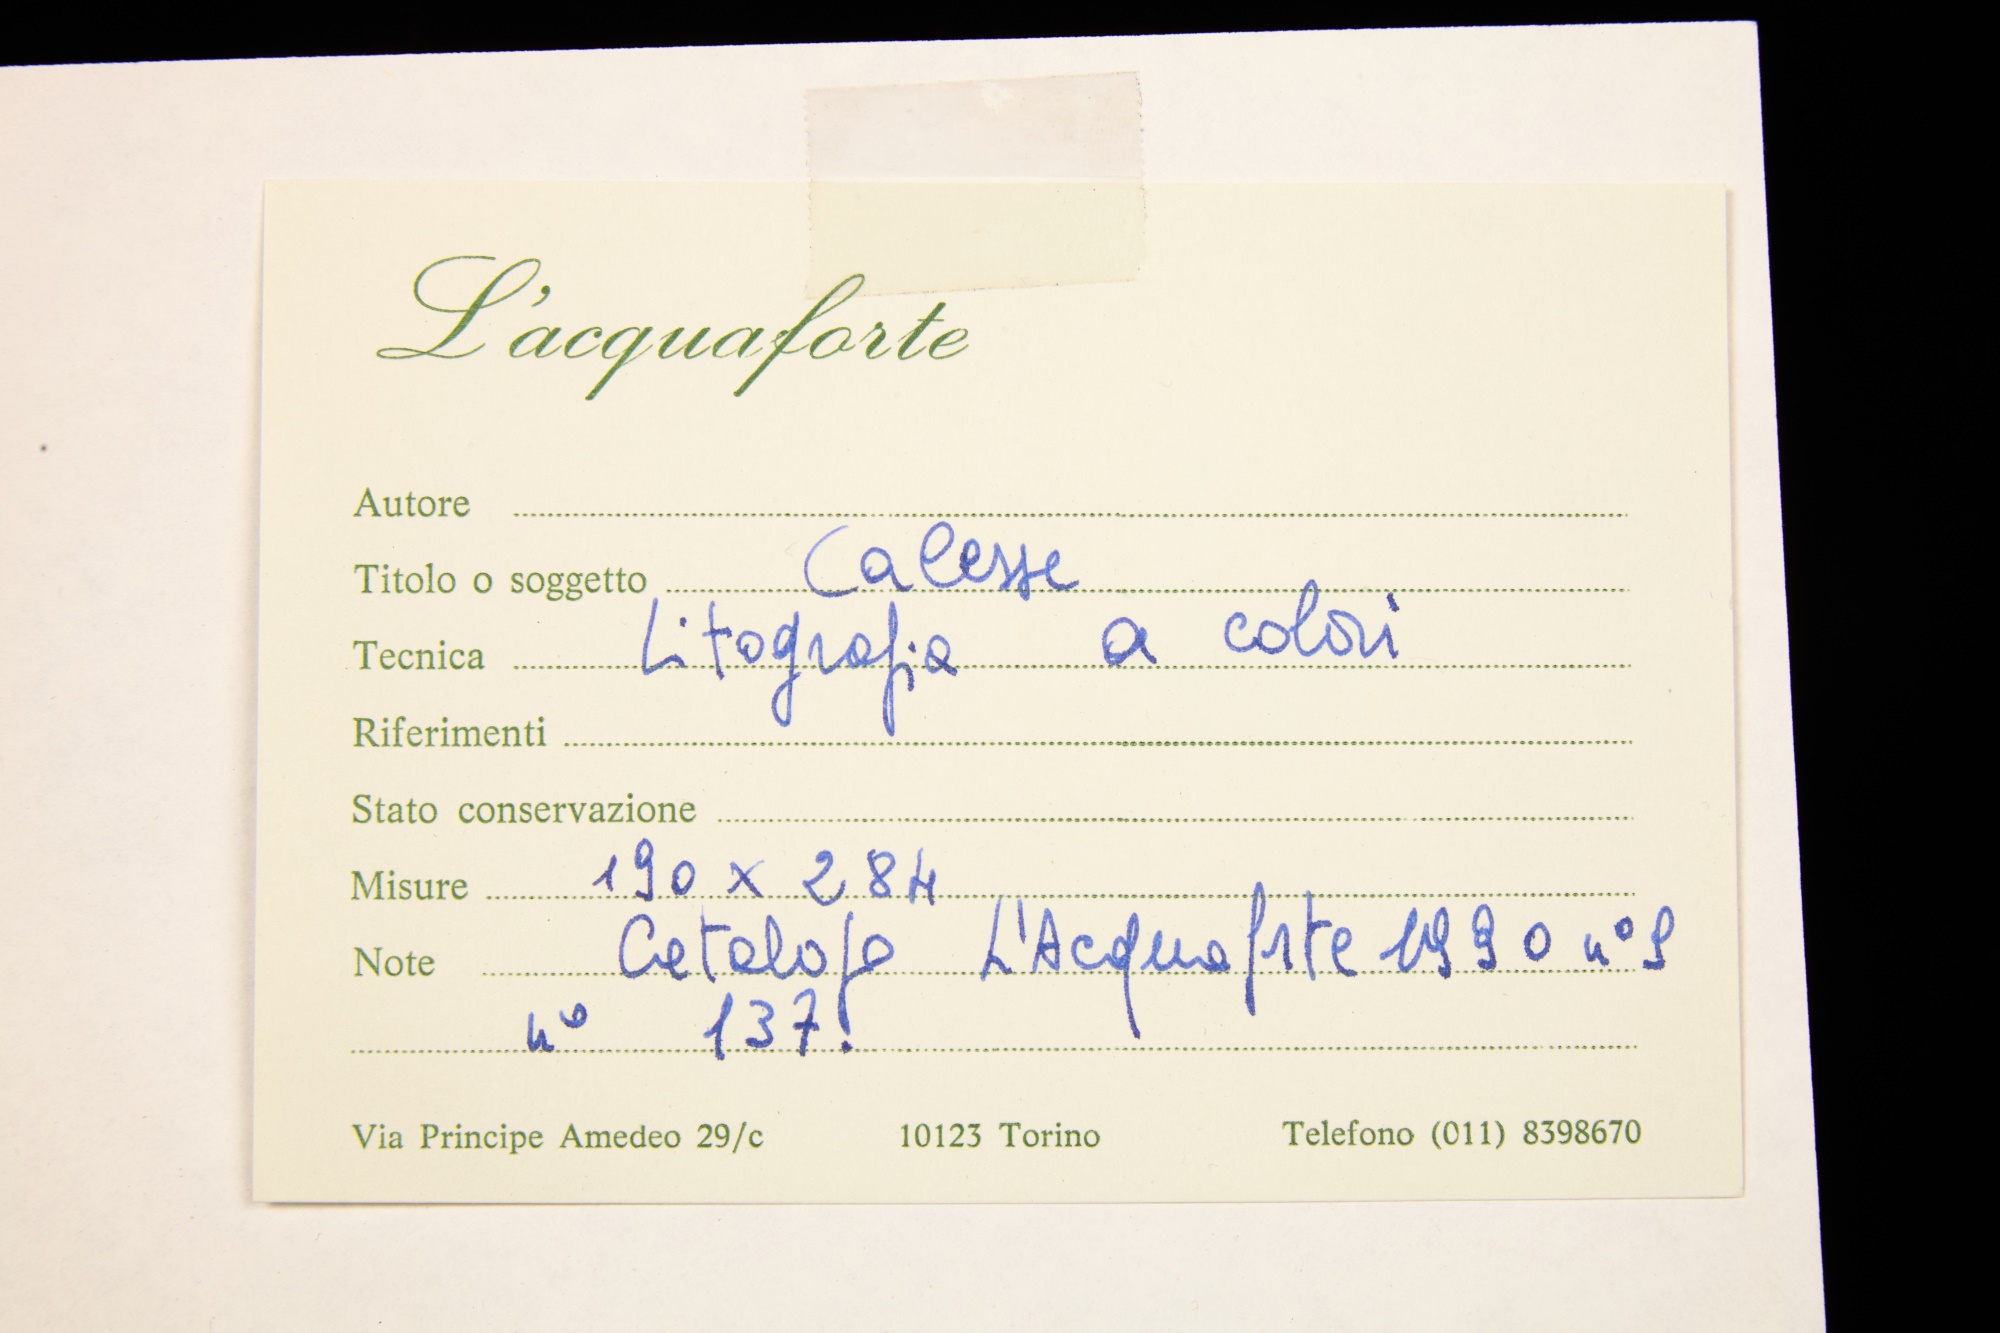 L'acquaforte
Autore
Titolo o soggetto Calesse
Tecnica Litografia a colori
Riferimenti
Stato conservazione
Misure 190 x 284
Note Catalogo L'Acquaforte 1990 n° 9
n° 137.
Via Principe Amedeo 29/c 10123 Torino Telefono (011) 8398670